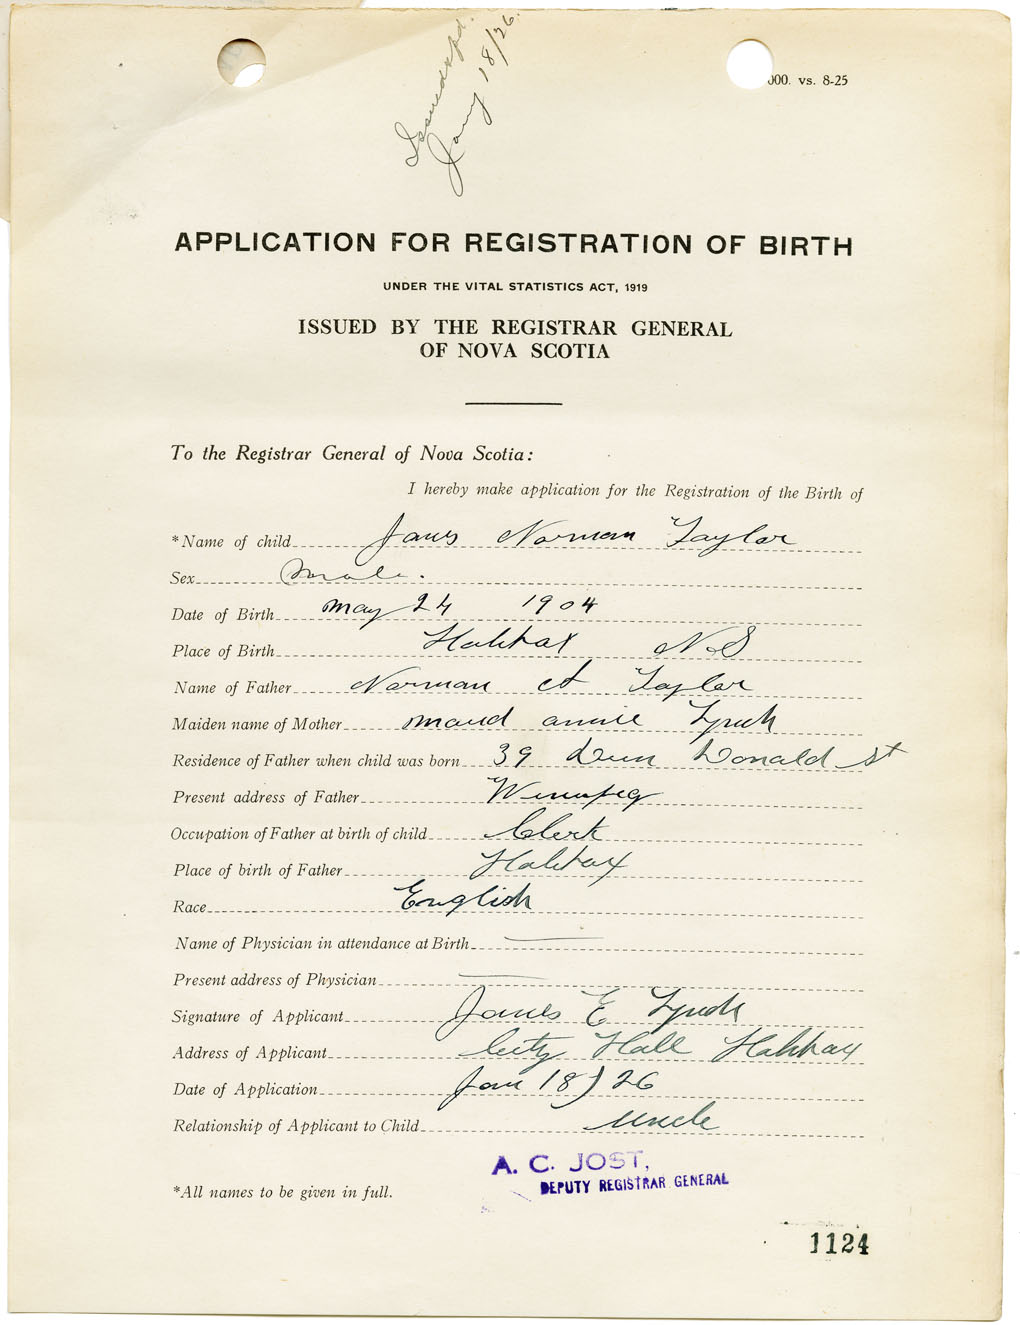 Issued & pd.
Jany 18/26.
000. vs. 8-25
APPLICATION FOR REGISTRATION OF BIRTH
UNDER THE VITAL STATISTICS ACT, 1919
ISSUED BY THE REGISTRAR GENERAL
OF NOVA SCOTIA
To the Registrar General of Nova Scotia:
I hereby make application for the Registration of the Birth of
*Name of child James Norman Taylor
Sex male.
Date of Birth May 24 1904
Place of Birth Halifax N.S
Name of Father Norman A Taylor
Maiden name of Mother Maud Annie Lynch
Residence of Father when child was born 39 Donald St
Present address of Father Winnipeg
Occupation of Father at birth of child Clerk
Place of birth of Father Halifax
Race English
Name of Physician in attendance at Birth —
Present address of Physician —
Signature of Applicant James E Lynch
Address of Applicant City Hall Halifax
Date of Application Jan 18/26
Relationship of Applicant to Child uncle
A. C. JOST,
DEPUTY REGISTRAR GENERAL
*All names to be given in full.
1124